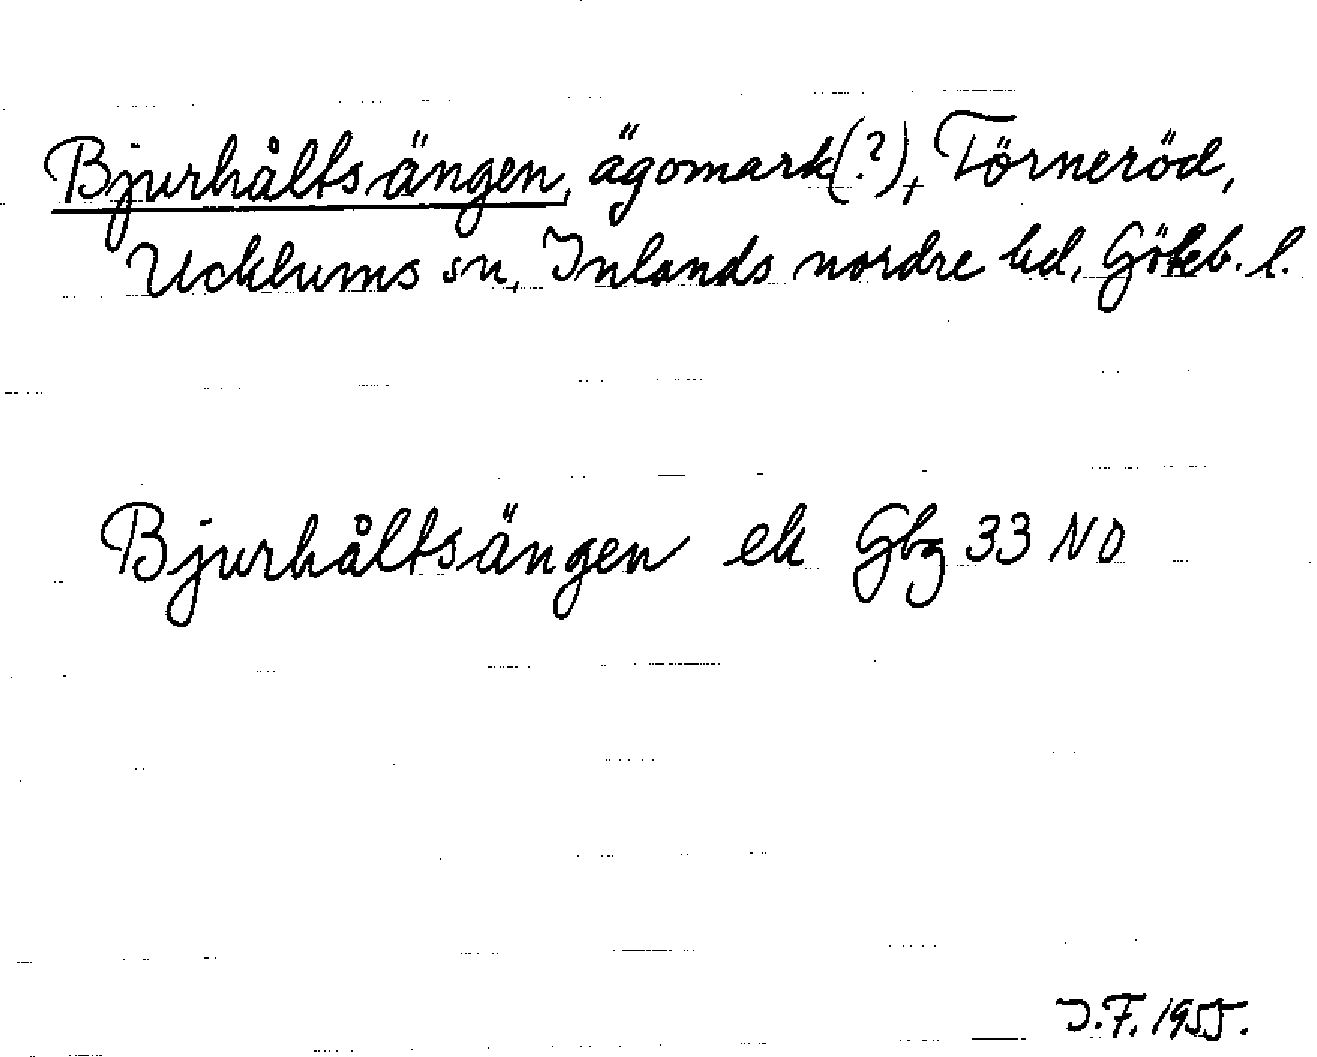 Bjurhåltsängen, ägomark(?), Törneröd,
Ucklums sn, Inlands nordre hd, Göteb. l.
Bjurhåltsängen ek Gbg 33 NO
J.F. 1955.